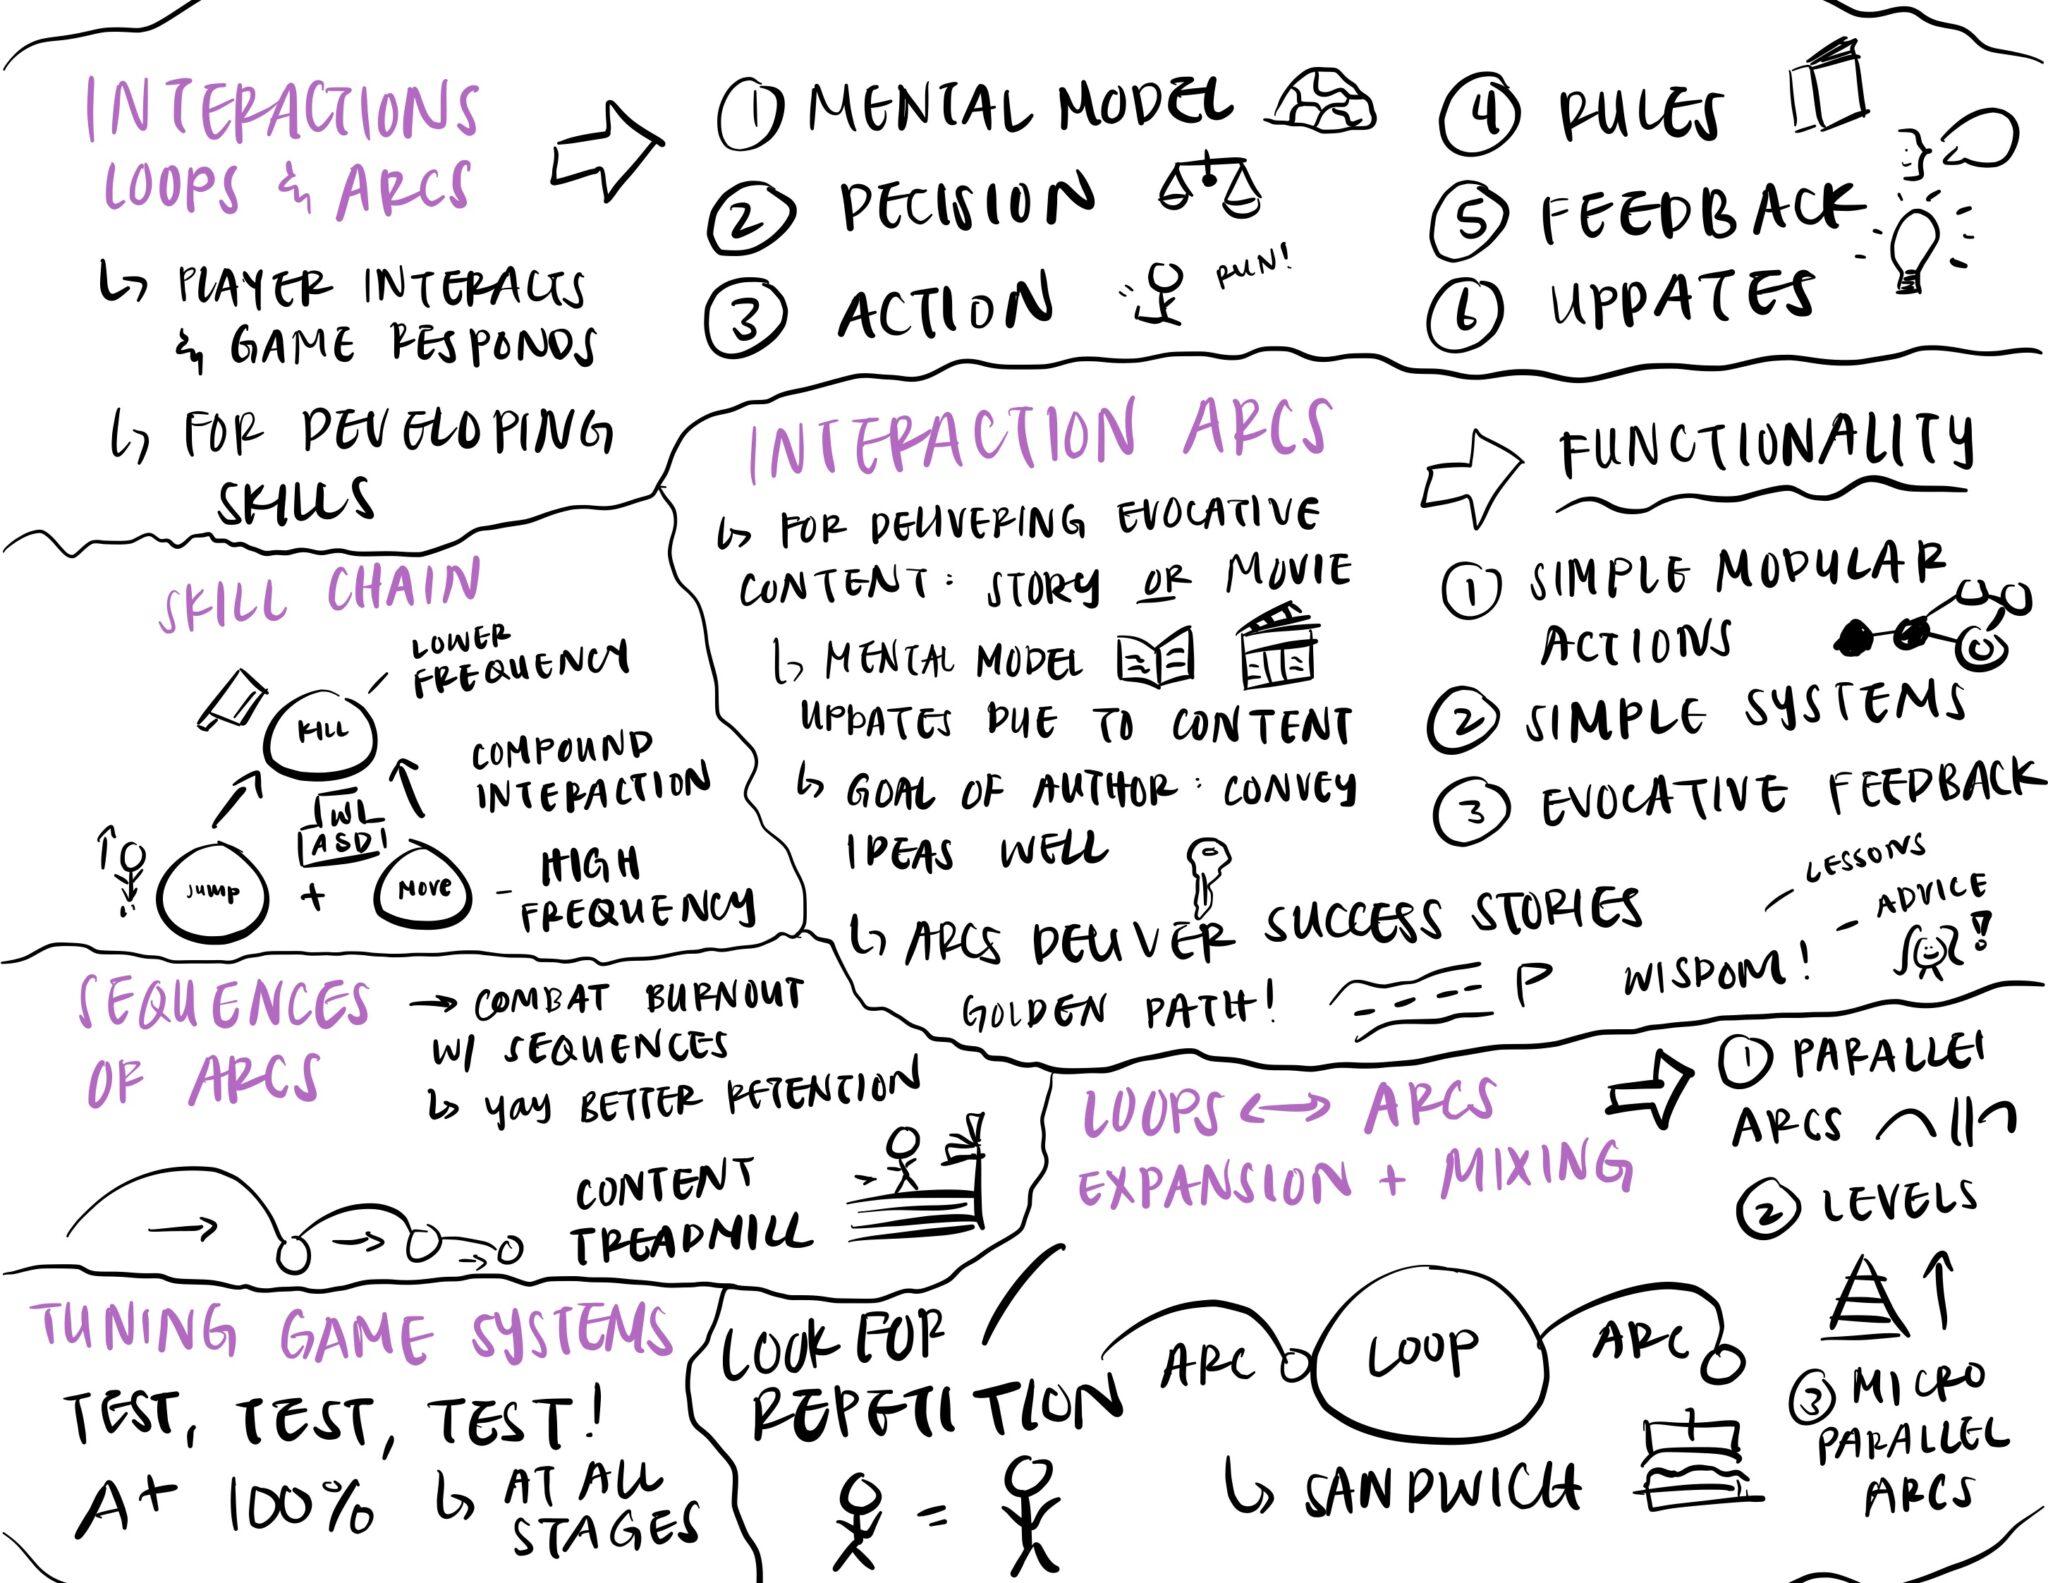 INTERACTIONS
LOOPS & ARCS
↳ PLAYER INTERACTS
& GAME RESPONDS
↳ FOR DEVELOPING
SKILLS
① MENTAL MODEL
② DECISION
③ ACTION
RUN!
④ RULES
⑤ FEEDBACK
⑥ UPDATES
SKILL CHAIN
LOWER
FREQUENCY
KILL
COMPOUND
INTERACTION
W
ASD
JUMP
+
MOVE
- HIGH
FREQUENCY
INTERACTION ARCS
↳ FOR DELIVERING EVOCATIVE
CONTENT: STORY OR MOVIE
↳ MENTAL MODEL
UPDATES DUE TO CONTENT
↳ GOAL OF AUTHOR: CONVEY
IDEAS WELL
↳ ARCS DELIVER SUCCESS STORIES
GOLDEN PATH!
P
WISDOM!
- LESSONS
- ADVICE
!
FUNCTIONALITY
① SIMPLE MODULAR
ACTIONS
② SIMPLE SYSTEMS
③ EVOCATIVE FEEDBACK
SEQUENCES
OF ARCS
→ COMBAT BURNOUT
W/ SEQUENCES
↳ YAY BETTER RETENTION
CONTENT
TREADMILL
LOOPS ↔ ARCS
EXPANSION + MIXING
① PARALLEL
ARCS
② LEVELS
③ MICRO
PARALLEL
ARCS
ARC
LOOP
ARC
↳ SANDWICH
TUNING GAME SYSTEMS
TEST, TEST, TEST!
A+ 100%
↳ AT ALL
STAGES
LOOK FOR
REPETITION
=